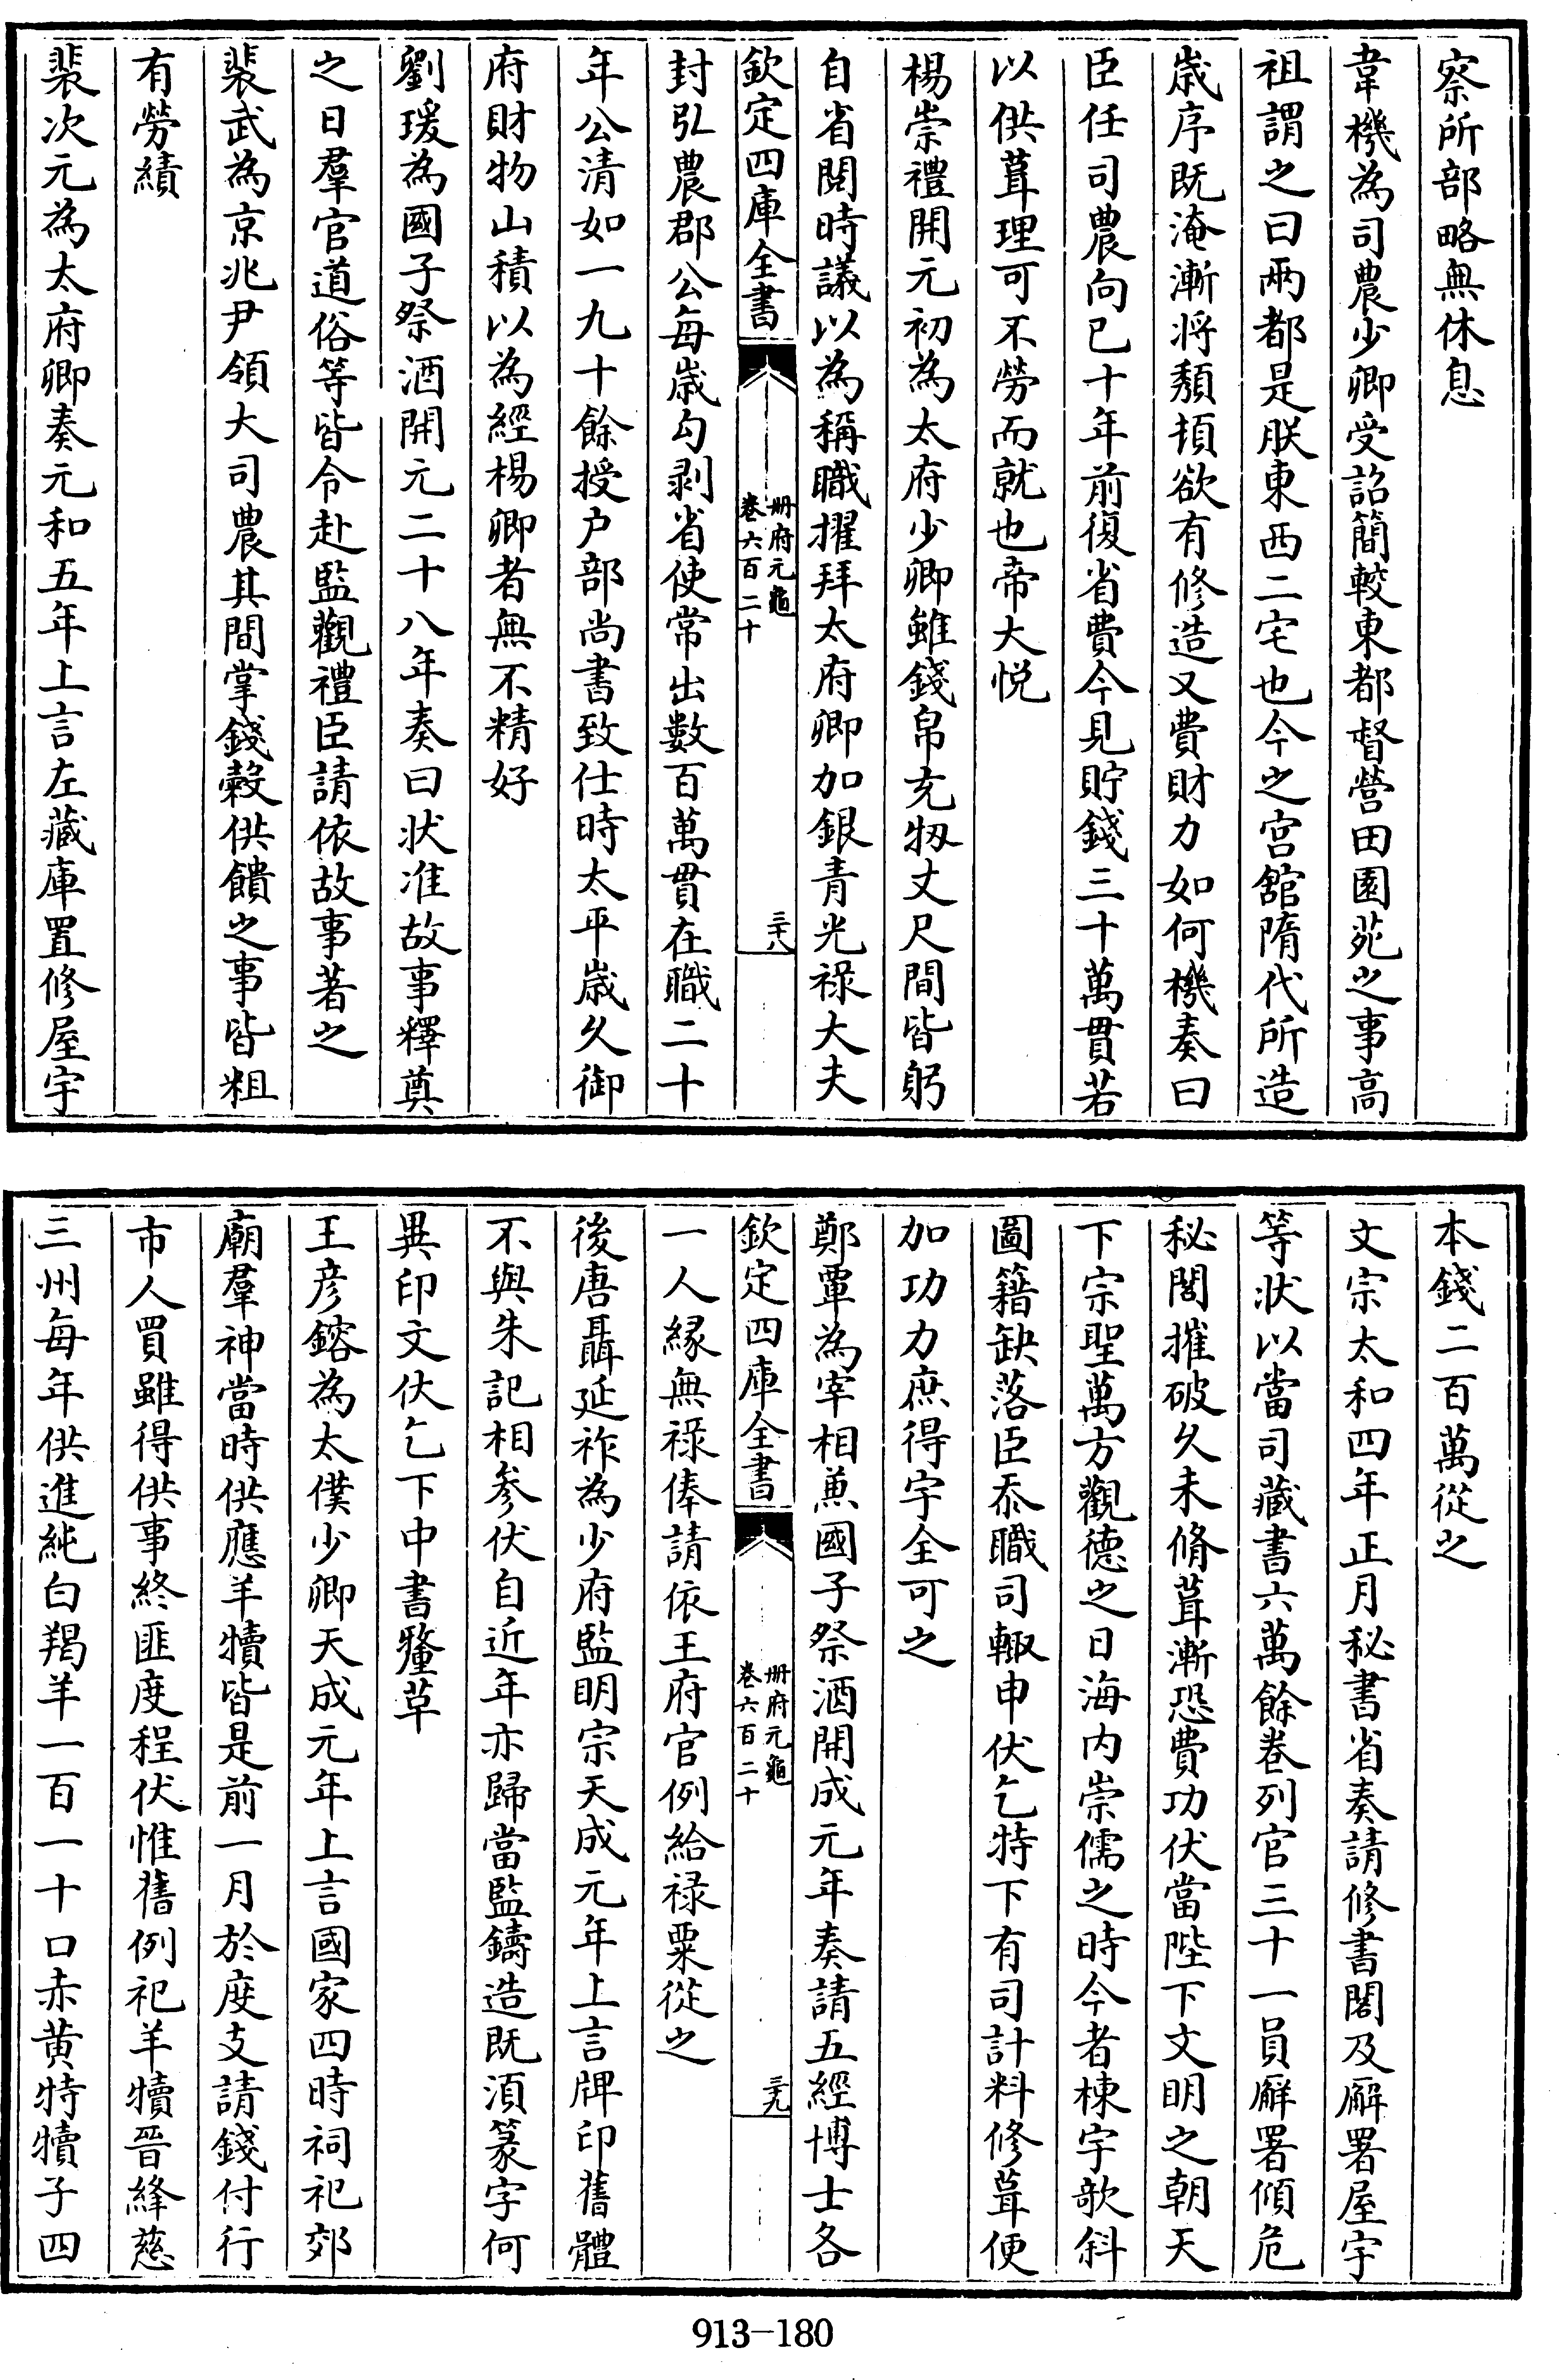 察所部略無休息
韋機為司農少卿受詔簡較東都督營田園苑之事高
祖謂之曰兩都是朕東西二宅也今之宫舘隋代所造
歳序既淹漸將頽頓欲有修造又費財力如何機奏曰
臣任司農向已十年前復省費今見貯錢三十萬貫若
以供葺理可不勞而就也帝大悅
楊崇禮開元初為太府少卿雖錢帛充牣丈尺間皆躬
自省閲時議以為稱職擢拜太府卿加銀青光禄大夫
欽定四庫全書
冊府元龜
卷六百二十
三十八
封弘農郡公每歳勾剥省使常出數百萬貫在職二十
年公清如一九十餘授户部尚書致仕時太平歳久御
府財物山積以為經楊卿者無不精好
劉瑗為國子祭酒開元二十八年奏曰状准故事釋奠
之日羣官道俗等皆令赴監觀禮臣請依故事著之
裴武為京兆尹領大司農其間掌錢穀供饋之事皆粗
有勞績
裴次元為太府卿奏元和五年上言左藏庫置修屋宇
本錢二百萬從之
文宗太和四年正月秘書省奏請修書閣及廨署屋宇
等状以當司藏書六萬餘卷列官三十一員廨署傾危
秘閣摧破久未脩葺漸恐費功伏當陛下文明之朝天
下宗聖萬方觀德之日海内崇儒之時今者棟宇欹斜
圖籍缺落臣忝職司輙申伏乞特下有司計料修葺便
加功力庶得宇全可之
鄭覃為宰相兼國子祭酒開成元年奏請五經博士各
欽定四庫全書
冊府元龜
卷六百二十
三十九
一人縁無禄俸請依王府官例給禄粟從之
後唐聶延祚為少府監明宗天成元年上言牌印舊體
不與朱記相參伏自近年亦歸當監鑄造既須篆字何
異印文伏乞下中書釐革
王彦鎔為太僕少卿天成元年上言國家四時祠祀郊
廟羣神當時供應羊犢皆是前一月於度支請錢付行
市人買雖得供事終匪度程伏惟舊例祀羊犢晉絳慈
三州每年供進純白羯羊一百一十口赤黄特犢子四
913—180